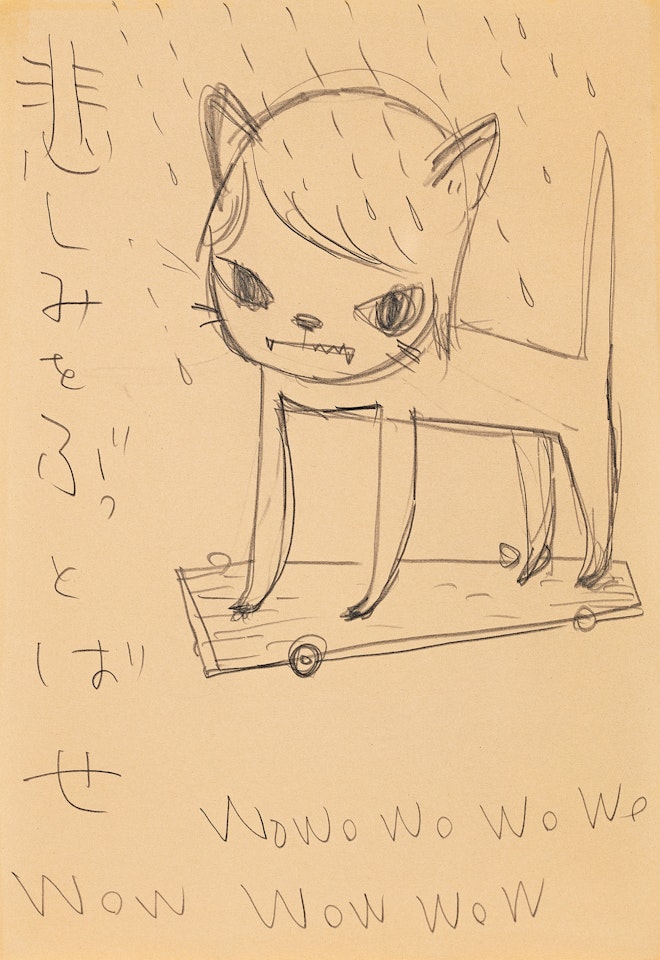 悲しみをぶっとばせ
WoWo Wo Wo Wo
Wow Wow Wow